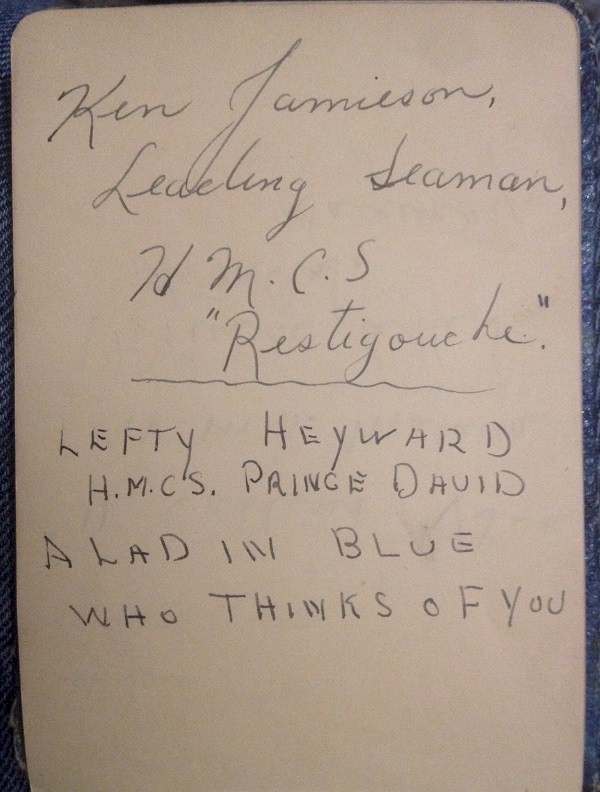 Ken Jamieson,
Leading Seaman,
H.M.C.S
"Restigouche".
LEFTY HEYWARD
H.M.C.S. PRINCE DAVID
A LAD IN BLUE
WHO THINKS OF YOU